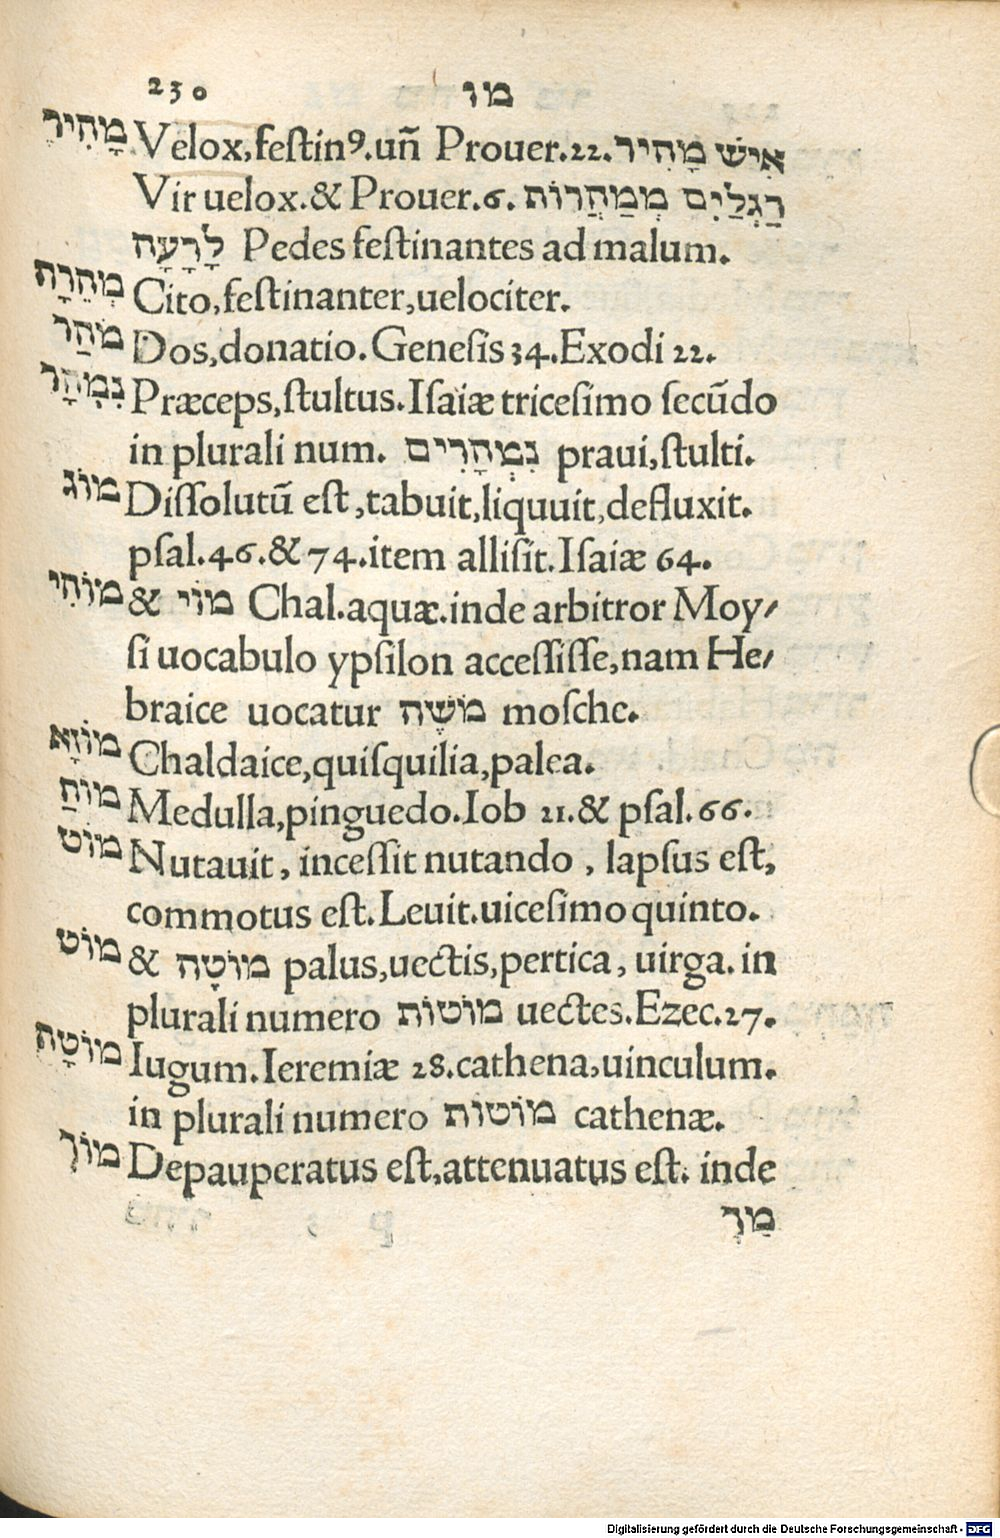 230 מו
מָהִיר Velox,festinꝰ.uñ Prouer.22. אִישׁ מָהִיר
Vir uelox.& Prouer.6. רַגְלַיִם מְמַהֲרוֹת
לָרָעָה Pedes festinantes ad malum.
מְהֵרָה Cito,festinanter,uelociter.
מֹהַר Dos,donatio.Genesis 34.Exodi 22.
נִמְהָר Præceps,stultus.Isaiæ tricesimo secũdo
in plurali num. נִמְהָרִים praui,stulti.
מוֹג Dissolutũ est,tabuit,liquuit,defluxit.
psal.46.&74.item allisit.Isaiæ 64.
מוֹהִי & מוֹי Chal.aquæ.inde arbitror Moy/
si uocabulo ypsilon accessisse,nam He/
braice uocatur מֹשֶׁה mosche.
מוֹזָא Chaldaice,quisquilia,palea.
מוֹחַ Medulla,pinguedo.Iob 21.& psal.66.
מוֹט Nutauit, incessit nutando, lapsus est,
commotus est.Leuit.uicesimo quinto.
מוֹט & מוֹטָה palus,uectis,pertica, uirga. in
plurali numero מוֹטוֹת uectes.Ezec.27.
מוֹטָה Iugum.Ieremiæ 28.cathena,uinculum.
in plurali numero מוֹטוֹת cathenæ.
מוֹךְ Depauperatus est,attenuatus est. inde
מַךְ
Digitalisierung gefördert durch die Deutsche Forschungsgemeinschaft - DFG